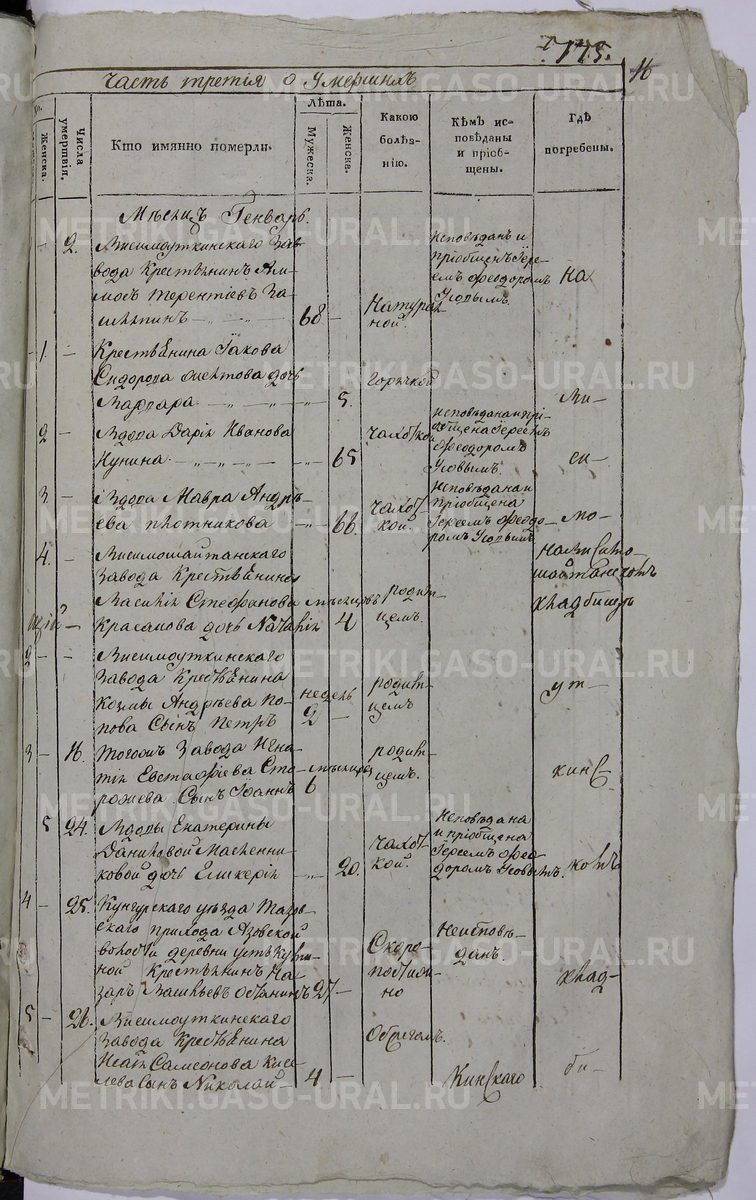 175.
16
Часть третія о умершихъ
Женска.
Числа умертвія.
Кто имянно померли.
Лѣта.
Мужеска.
Женска.
Какою болѣзнію.
Кѣмъ исповѣданы и пріобщены.
Гдѣ погребены.
Мѣсяцъ Генварь.
2.
Висимоуткинскаго За-
вода Крестьянинъ
Терентіевъ
68 —
Натураль-
ной.
Исповѣданъ и
пріобщенъ Іере-
емъ Феодоромъ
Усовымъ
На
1 —
Крестьянина Іакова
Сидорова дочь
Варвара
5.
Горячкой
Ви-
2 —
Вдова Дарія Иванова
Кунина
65
Чахоткой
Исповѣдана и прі-
общена Іереемъ
Феодоромъ
Усовымъ.
си-
3 —
Вдова Мавра Андрѣ-
ева Плотникова
66
Чахот-
кой.
Исповѣдана и
пріобщена
Іереемъ Феодо-
ромъ Усовымъ
мо-
4. —
Висимошайтанскаго
Завода Крестьянина
Василія Стефанова
дочь Наталія
мѣсяцовъ
4
родим-
цемъ.
на Висимо-
шайтанскомъ
кладбищѣ
2 —
Висимоуткинскаго
Завода Крестьянина
Козмы Андрѣева По-
пова Сынъ Петръ
недель
2 —
родим-
цемъ
ут-
3 — 16.
Тогожъ Завода Игна-
тія Евстафіева Сто-
рожева Сынъ Іоаннъ
мѣсяцовъ
6
родим-
цемъ.
кинс-
5 24.
Вдовы Екатерины
Даниловой Масленни-
ковой дочь Гликерія
20.
Чахот-
кой.
Исповѣдана
и пріобщена
Іереемъ Фео-
доромъ Усовымъ.
комъ
4 — 25.
Кунгурскаго уѣзда
прихода Азовской
волости деревни Усть
Крестьянинъ На-
заръ Васильевъ
27 —
Скоро-
постиж-
но
Неисповѣ-
данъ
клад-
5 — 26.
Висимоуткинскаго
Завода Крестьянина
Исаіи Самсонова Кисе-
лева Сынъ Николай
4 —
Кинскаго
би-
METRIKI.GASO-URAL.RU